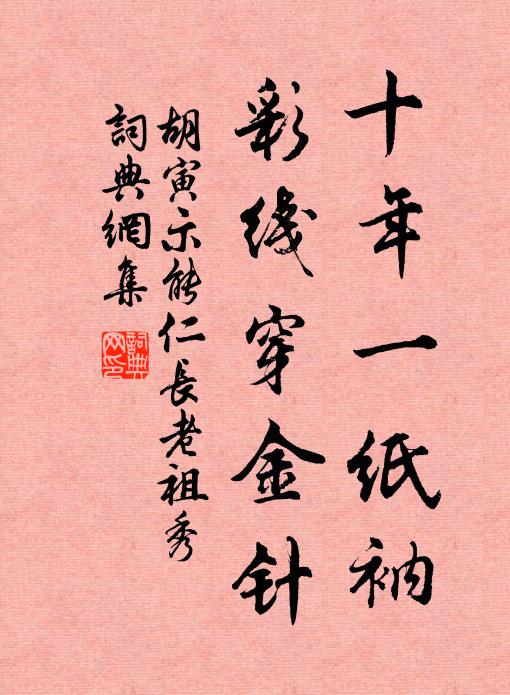 十年一紙衲
彩綫穿金针
胡寅示能仁長老祖秀
詞典網集
詞典
网印